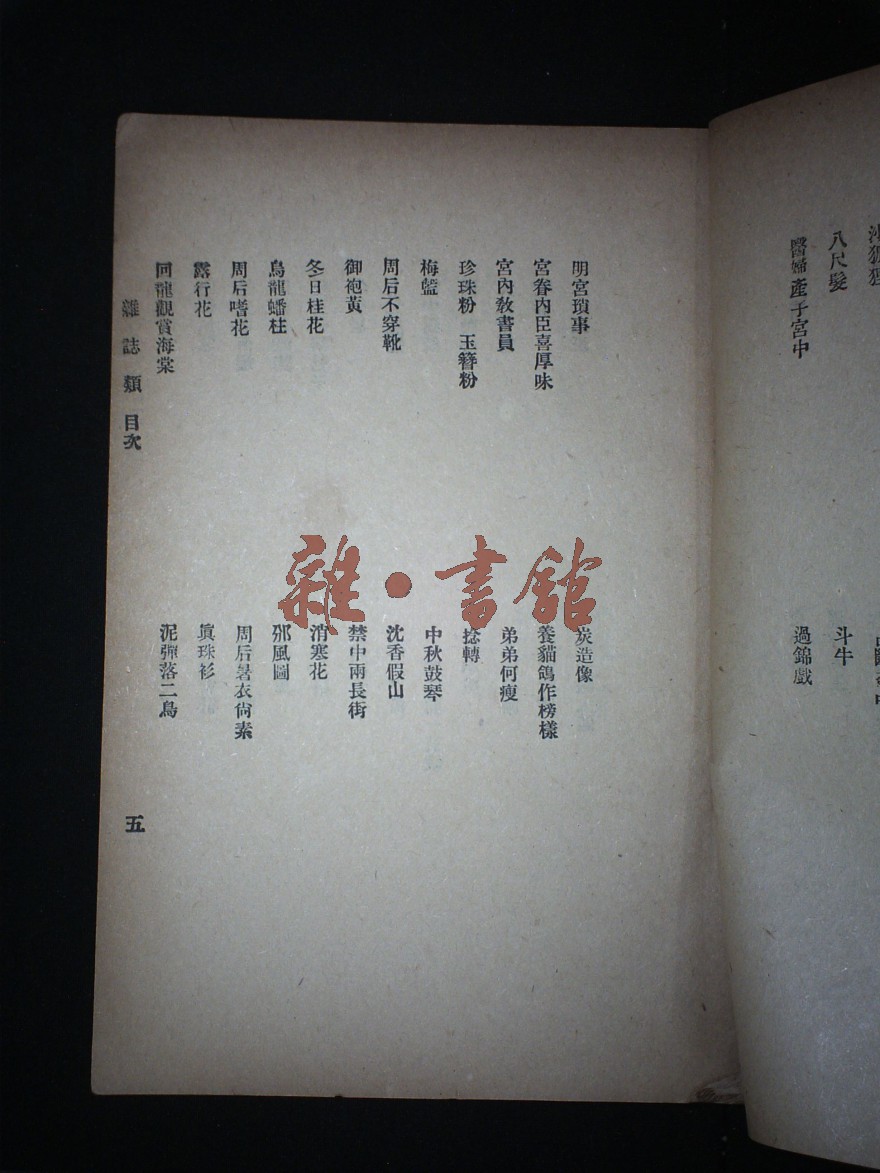 八尺髮
醫婦產子宮中
斗牛
過錦戲
明宮瑣事
宮眷內臣喜厚味
宮內敎書員
珍珠粉　玉簪粉
梅籃
周后不穿靴
御袍黃
冬日桂花
烏龍蟠柱
周后嗜花
露行花
回龍觀賞海棠
炭造像
養貓鴿作榜樣
弟弟何瘦
捻轉
中秋鼓琴
沈香假山
禁中兩長街
消寒花
邠風圖
周后暑衣尙素
眞珠衫
泥彈落二鳥
雜誌類　目次
五
雜·書館